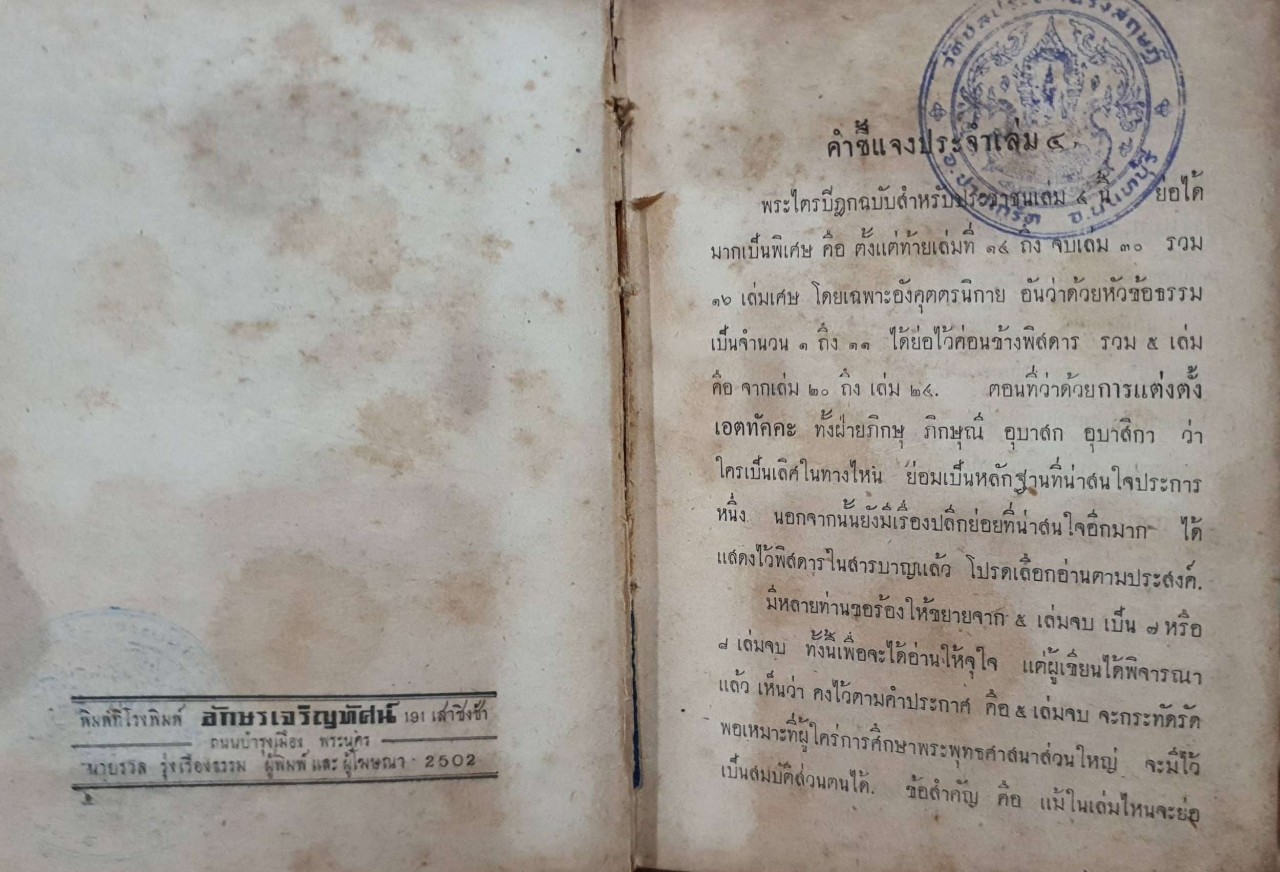 พิมพ์ที่โรงพิมพ์ อักษรเจริญทัศน์ 191 เสาชิงช้า
ถนนบำรุงเมือง พระนคร
รุ่งเรืองธรรม ผู้พิมพ์ และ ผู้โฆษณา 2502
คำชี้แจงประจำเล่ม ๔
พระไตรปิฎกฉบับสำหรับประชาชนเล่ม ๔ นี้ ย่อได้
มากเป็นพิเศษ คือ ตั้งแต่ท้ายเล่มที่ ๑๔ ถึง จบเล่ม ๓๐ รวม
๑๖ เล่มเศษ โดยเฉพาะอังคุตตรนิกาย อันว่าด้วยหัวข้อธรรม
เป็นจำนวน ๑ ถึง ๑๑ ได้ย่อไว้ค่อนข้างพิสดาร รวม ๕ เล่ม
คือ จากเล่ม ๒๐ ถึง เล่ม ๒๔. ตอนที่ว่าด้วยการแต่งตั้ง
เอตทัคคะ ทั้งฝ่ายภิกษุ ภิกษุณี อุบาสก อุบาสิกา ว่า
ใครเป็นเลิศในทางไหน ย่อมเป็นหลักฐานที่น่าสนใจประการ
หนึ่ง นอกจากนั้นยังมีเรื่องปลีกย่อยที่น่าสนใจอีกมาก ได้
แสดงไว้พิสดารในสารบาญแล้ว โปรดเลือกอ่านตามประสงค์.
มีหลายท่านขอร้องให้ขยายจาก ๕ เล่มจบ เป็น ๗ หรือ
๘ เล่มจบ ทั้งนี้เพื่อจะได้อ่านให้จุใจ แต่ผู้เขียนได้พิจารณา
แล้ว เห็นว่า คงไว้ตามคำประกาศ คือ ๕ เล่มจบ จะกระทัดรัด
พอเหมาะที่ผู้ใคร่การศึกษาพระพุทธศาสนาส่วนใหญ่ จะมีไว้
เป็นสมบัติส่วนตนได้. ข้อสำคัญ คือ แม้ในเล่มไหนจะย่อ